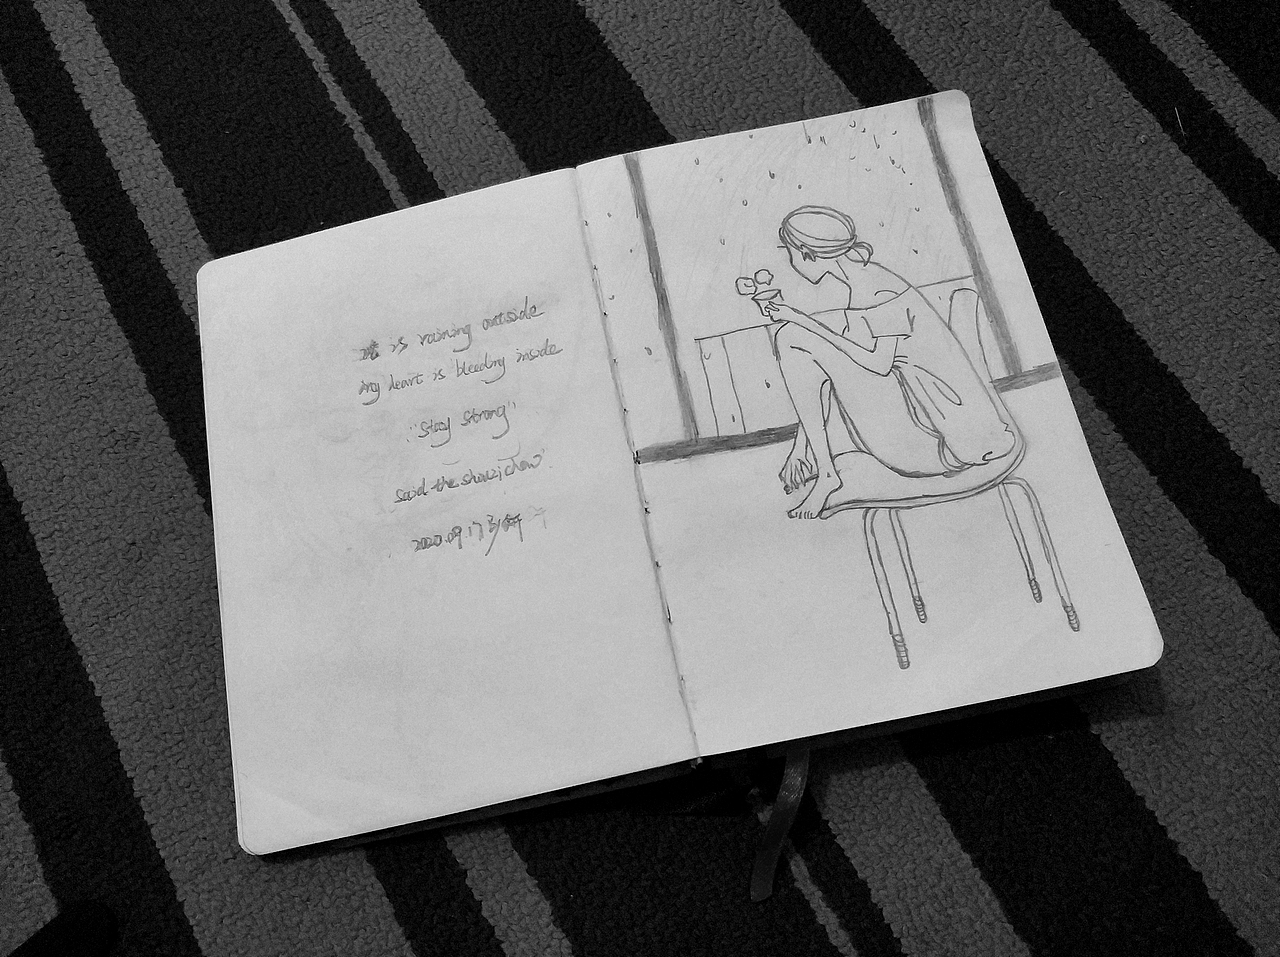 it is raining outside
my heart is bleeding inside
"Stay Strong"
Said the shouzichow
2020.09.17